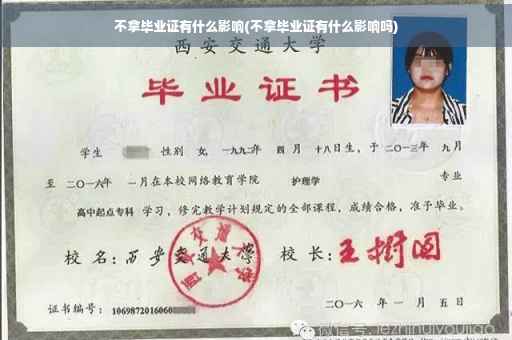 不拿毕业证有什么影响(不拿毕业证有什么影响吗)
西安交通大学
毕业证书
学生 性别 女, 一九九二年 四 月 十八日生, 于 二〇一三年 九月
至 二〇一六年 一月在本校网络教育学院 护理学 专业
高中起点专科 学习, 修完教学计划规定的全部课程, 成绩合格, 准予毕业。
校 名: 西安交通大学 校 长: 王树国
西安交通大学
证书编号: 1069872016060
二〇一六 年 一 月 五 日
微信号: jezhihuiyoujiao